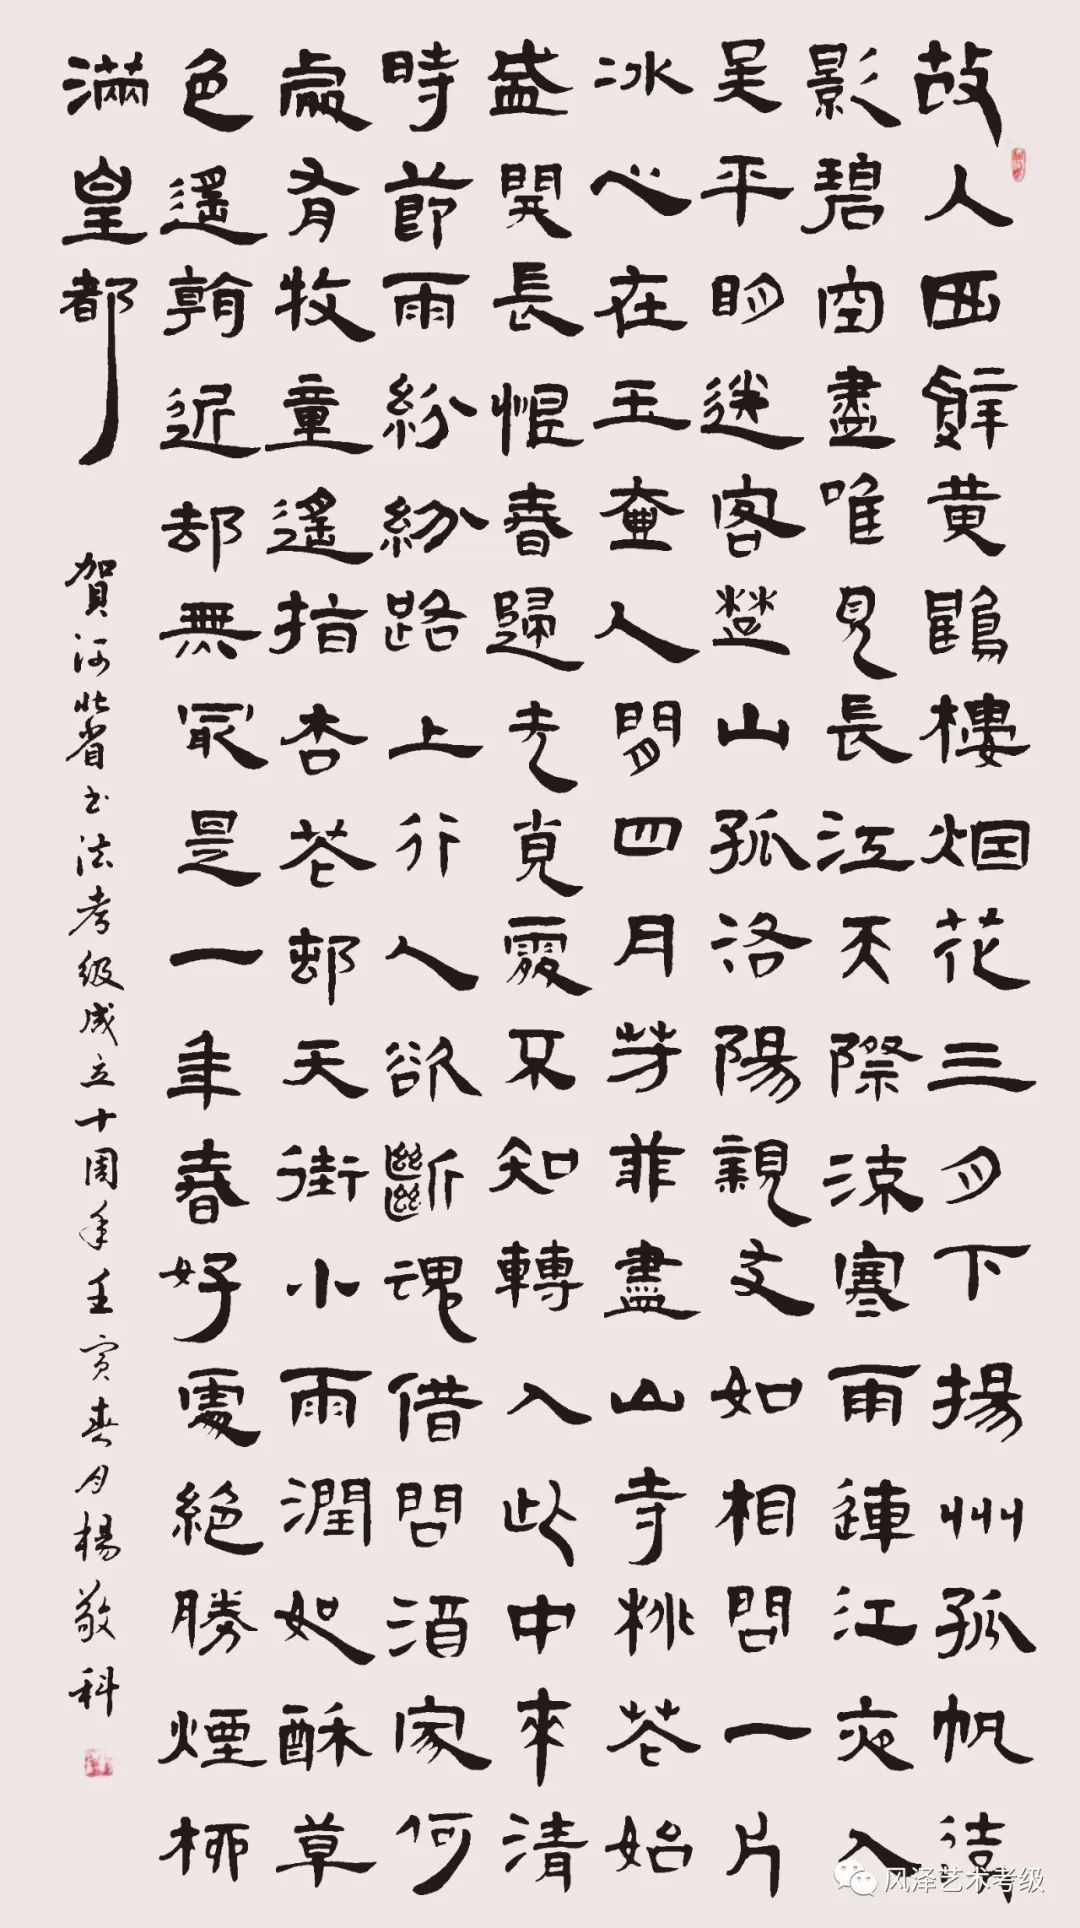 故人西辭黄鶴樓烟花三月下揚州孤帆遠
影碧空盡唯見長江天際流寒雨連江夜入
吴平明送客楚山孤洛陽親友如相問一片
冰心在玉壺人間四月芳菲盡山寺桃花始
盛開長恨春歸无覓處不知轉入此中來清
時節雨紛紛路上行人欲斷魂借問酒家何
處有牧童遙指杏花邨天街小雨潤如酥草
色遙看近却無最是一年春好處絕勝煙柳
滿皇都
賀河北省书法考级成立十周年壬寅春月楊敬科
风泽艺术考级